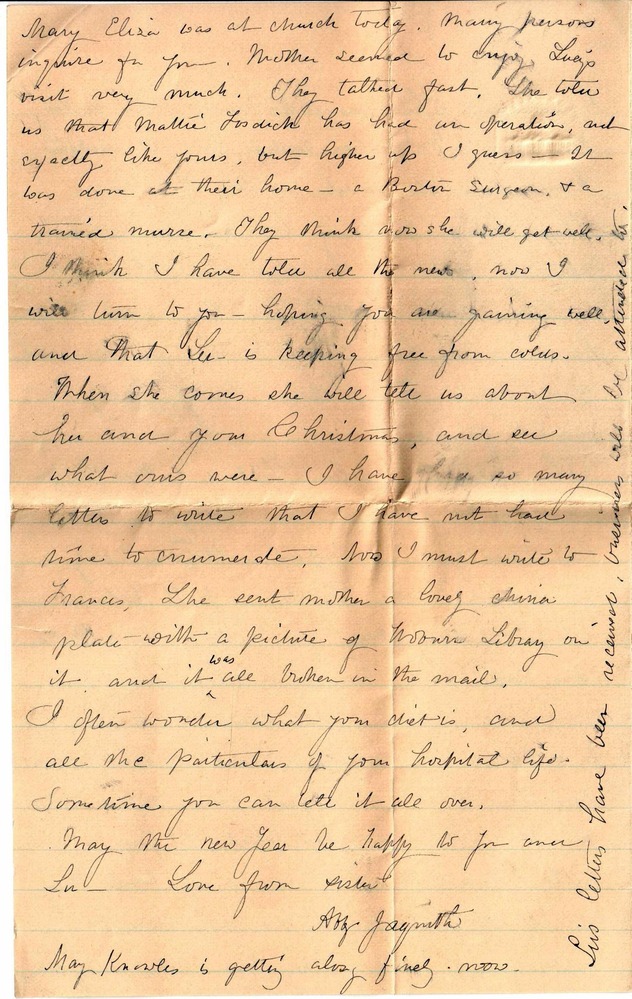 Mary Eliza was at church today. Many persons
inquire for you. Mother seemed to enjoy Lucy's
visit very much. They talked fast. She told
us that Mattie Fosdick has had an operation, not
exactly like yours, but higher up I guess - It
was done at their home - a Boston Surgeon, & a
trained nurse. They think now she will get well.
I think I have told all the news, now I
will turn to you - hoping you are gaining well
and that Lu - is keeping free from colds.
When she comes she will tell us about
her and your Christmas, and see
what ours were - I have had so many
letters to write that I have not had
time to enumerate. Now I must write to
Frances. She sent mother a lovely china
plate with a picture of Woburn Library on
it and it was all broken in the mail.
I often wonder what your diet is, and
all the particulars of your hospital life.
Sometime you can tell it all over.
May the new Year be happy to you and
Lu - Love from sister
Abby
May Knowles is getting along finely now.
Lu's letters have been received, business will be attended to.